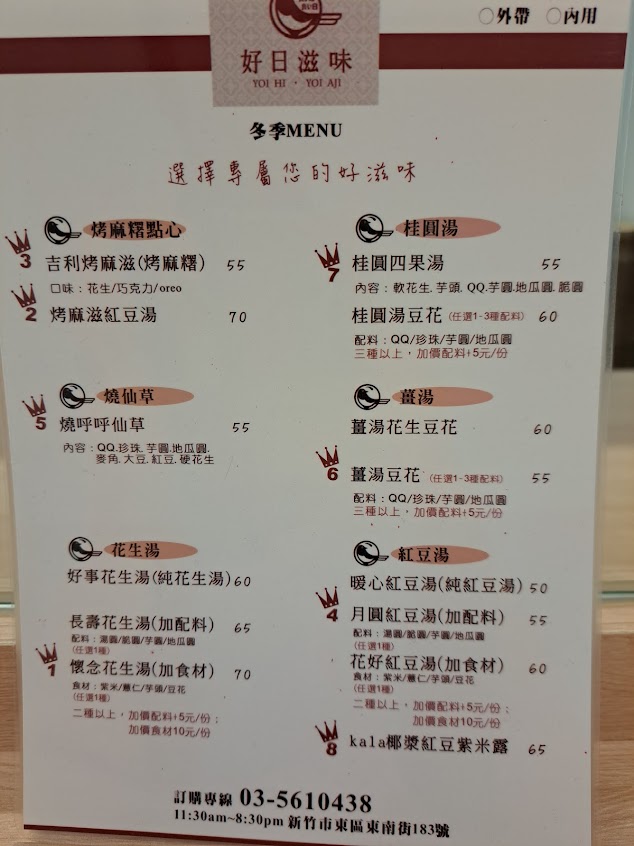 ○外帶 ○內用
好日滋味
YOI HI · YOI AJI
冬季MENU
選擇專屬您的好滋味
烤麻糬點心
3 吉利烤麻滋(烤麻糬) 55
口味：花生/巧克力/oreo
2 烤麻滋紅豆湯 70
燒仙草
5 燒呼呼仙草 55
內容：QQ.珍珠.芋圓.地瓜圓.
麥角.大豆.紅豆.硬花生
花生湯
好事花生湯(純花生湯)60
長壽花生湯(加配料) 65
配料：湯圓/脆圓/芋圓/地瓜圓
(任選1種)
1 懷念花生湯(加食材) 70
食材：紫米/薏仁/芋頭/豆花
(任選1種)
二種以上，加價配料+5元/份；
加價食材10元/份
桂圓湯
7 桂圓四果湯 55
內容：軟花生.芋頭.QQ.芋圓.地瓜圓.脆圓
桂圓湯豆花(任選1-3種配料) 60
配料：QQ/珍珠/芋圓/地瓜圓
三種以上，加價配料+5元/份
薑湯
薑湯花生豆花 60
6 薑湯豆花 (任選1-3種配料) 55
配料：QQ/珍珠/芋圓/地瓜圓
三種以上，加價配料+5元/份
紅豆湯
暖心紅豆湯(純紅豆湯) 50
4 月圓紅豆湯(加配料) 55
配料：湯圓/脆圓/芋圓/地瓜圓
(任選1種)
花好紅豆湯(加食材) 60
食材：紫米/薏仁/芋頭/豆花
(任選1種)
二種以上，加價配料+5元/份；
加價食材10元/份
8 kala椰漿紅豆紫米露 65
訂購專線 03-5610438
11:30am~8:30pm 新竹市東區東南街183號